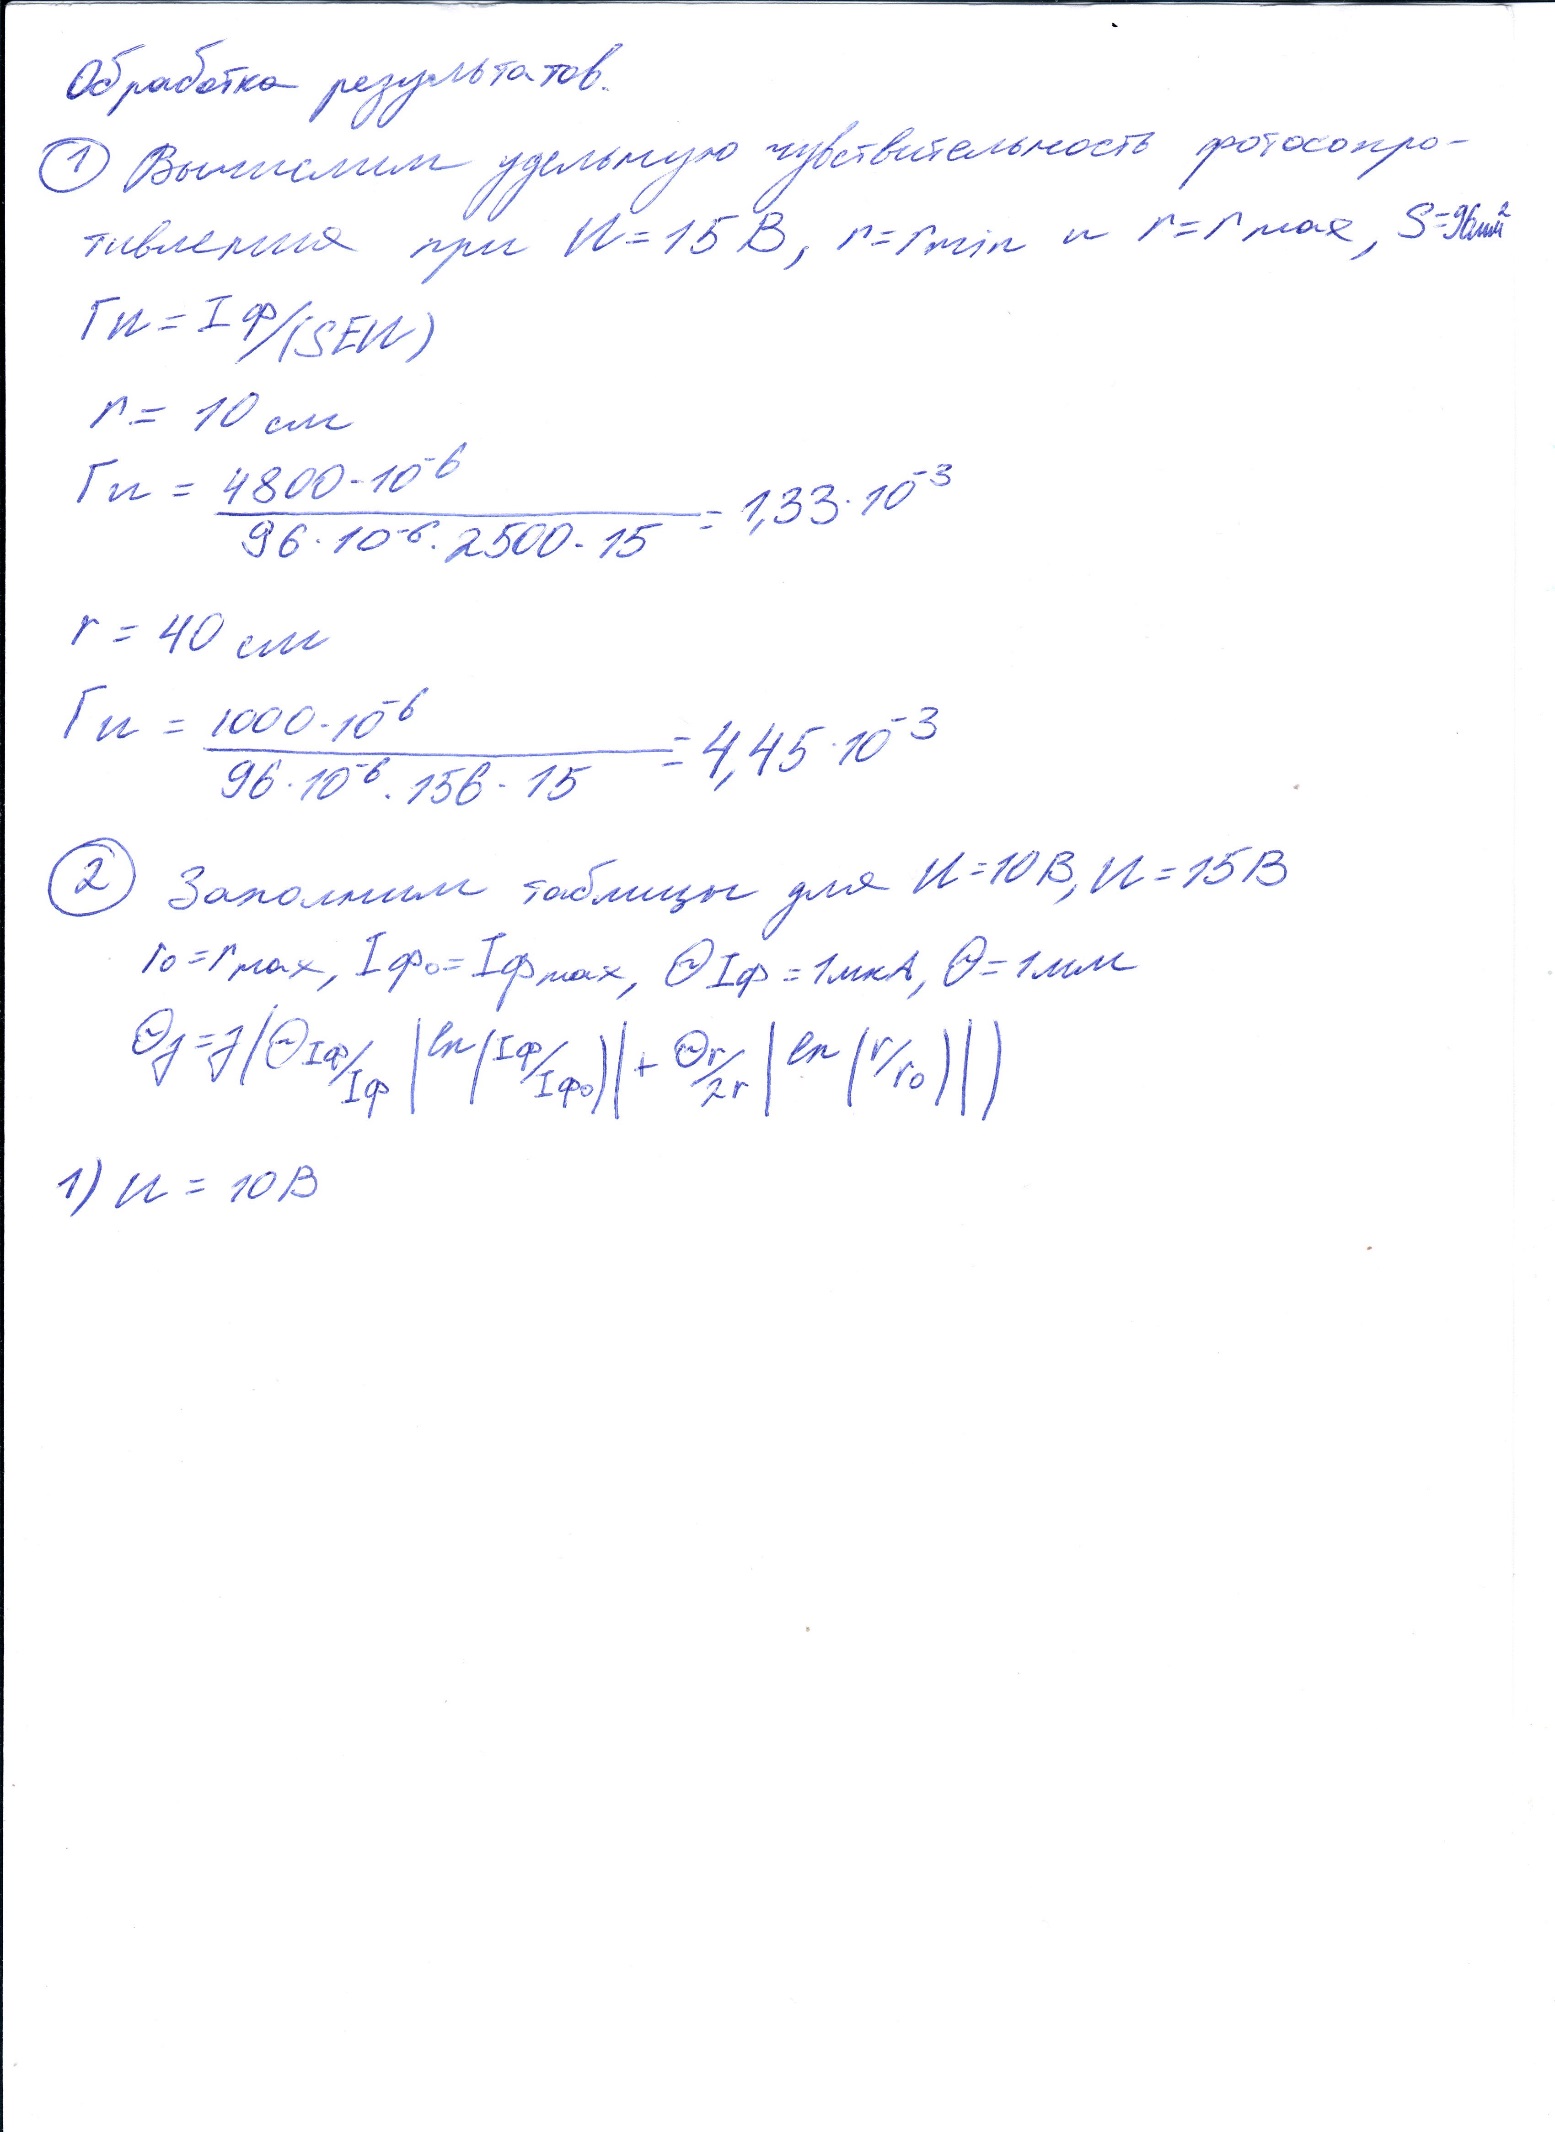 Обработка результатов.
① Вычислим удельную чувствительность фотосопро-
тивления при U = 15 В, r = r min и r = r max, S = 96 мм²
Гu = Iф/(SEU)
r = 10 см
Гu = 4800 · 10⁻⁶ / 96 · 10⁻⁶ · 2500 · 15 = 1,33 · 10⁻³
r = 40 см
Гu = 1000 · 10⁻⁶ / 96 · 10⁻⁶ · 156 · 15 = 4,45 · 10⁻³
② Заполним таблицы для U = 10 В, U = 15 В
r₀ = r max, Iф₀ = Iф max, ΘIф = 1 мкА, Θ = 1 мм
Θγ = γ(ΘIф/Iф |ln(Iф/Iф₀)| + Θr/2r |ln(r/r₀)|)
1) U = 10 В